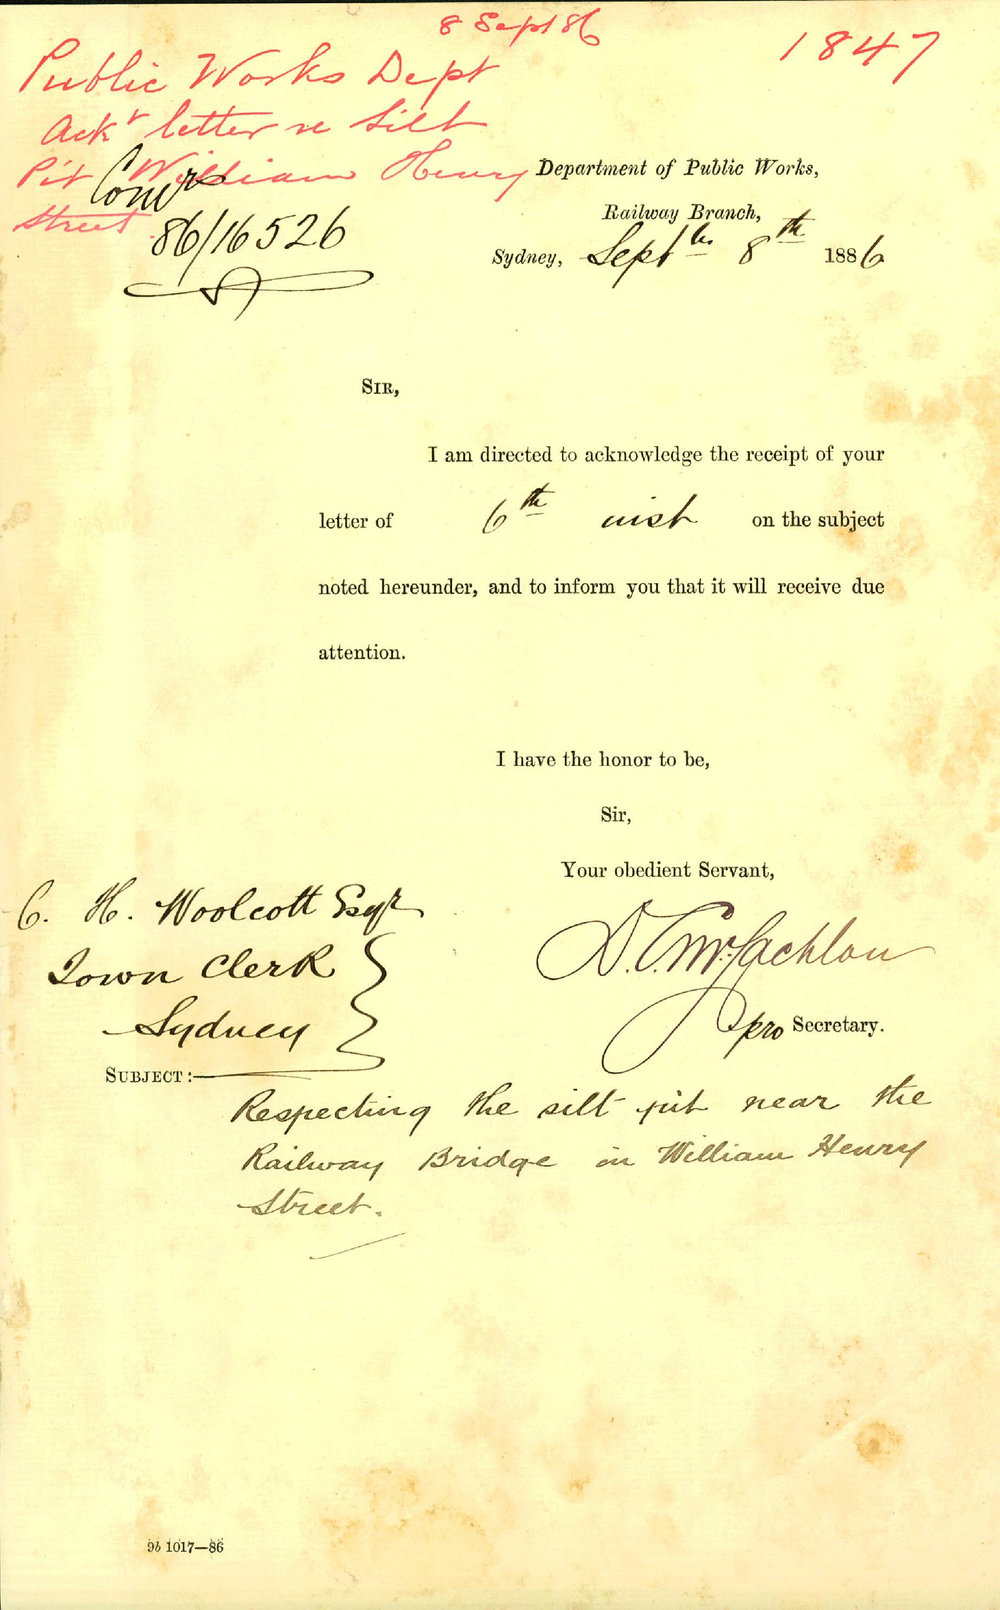 8 Sept 86
1847
Public Works Dept
Ackt letter re Silt
Pit William Henry
Street
Comrs
86/16526
Department of Public Works,
Railway Branch,
Sydney, Septbr 8th 1886
SIR,
I am directed to acknowledge the receipt of your
letter of 6th inst on the subject
noted hereunder, and to inform you that it will receive due
attention.
I have the honor to be,
Sir,
Your obedient Servant,
D. C. McLachlan
pro Secretary.
C. H. Woolcott Esqr
Town Clerk
Sydney
SUBJECT:—
Respecting the silt pit near the
Railway Bridge in William Henry
Street.
9b 1017—86